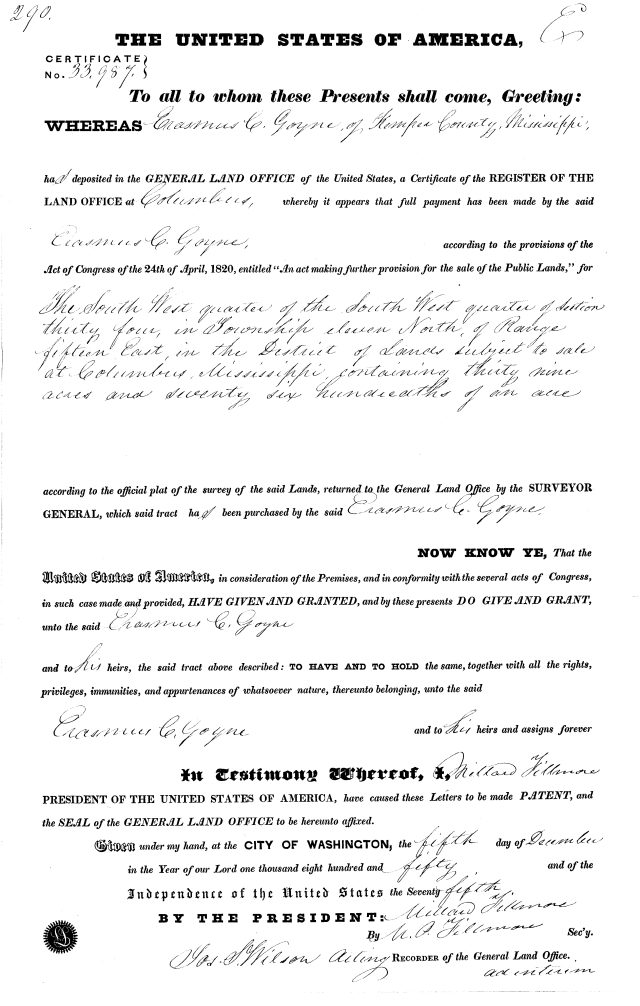 290.
THE UNITED STATES OF AMERICA,
CERTIFICATE
No. 33.987.
To all to whom these Presents shall come, Greeting:
WHEREAS Erasmus C. Goyne, of Kemper County, Mississippi,
has deposited in the GENERAL LAND OFFICE of the United States, a Certificate of the REGISTER OF THE
LAND OFFICE at Columbus, whereby it appears that full payment has been made by the said
Erasmus C. Goyne, according to the provisions of the
Act of Congress of the 24th of April, 1820, entitled "An act making further provision for the sale of the Public Lands," for
The South West quarter of the South West quarter of Section
thirty four, in Township eleven North, of Range
fifteen East, in the District of Lands subject to sale
at Columbus, Mississippi, containing thirty nine
acres and seventy six hundredths of an acre
according to the official plat of the survey of the said Lands, returned to the General Land Office by the SURVEYOR
GENERAL, which said tract has been purchased by the said Erasmus C. Goyne,
NOW KNOW YE, That the
United States of America, in consideration of the Premises, and in conformity with the several acts of Congress,
in such case made and provided, HAVE GIVEN AND GRANTED, and by these presents DO GIVE AND GRANT,
unto the said Erasmus C. Goyne
and to his heirs, the said tract above described: TO HAVE AND TO HOLD the same, together with all the rights,
privileges, immunities, and appurtenances of whatsoever nature, thereunto belonging, unto the said
Erasmus C. Goyne and to his heirs and assigns forever
In Testimony Whereof, I, Millard Fillmore
PRESIDENT OF THE UNITED STATES OF AMERICA, have caused these Letters to be made PATENT, and
the SEAL of the GENERAL LAND OFFICE to be hereunto affixed.
Given under my hand, at the CITY OF WASHINGTON, the fifth day of December
in the Year of our Lord one thousand eight hundred and fifty and of the
Independence of the United States the Seventy fifth
BY THE PRESIDENT: Millard Fillmore
By M. P. Fillmore Sec'y.
Jos. S. Wilson Acting RECORDER of the General Land Office.
ad interim